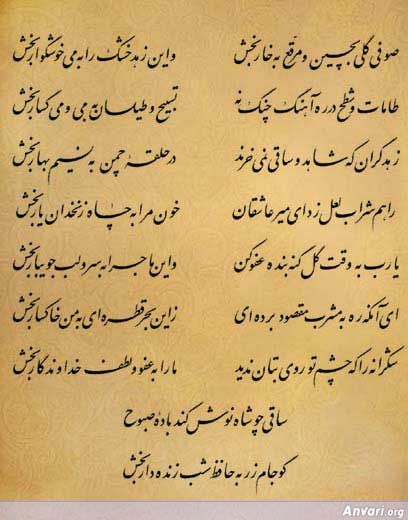 صوفی گلی بچین و مرقع به خار بخش واین زهد خشک را به می خوشگوار بخش
طامات و شطح در ره آهنگ چنگ نه تسبیح و طیلسان به می و میگسار بخش
زهد گران که شاهد و ساقی نمی خرند در حلقه چمن به نسیم بهار بخش
راهم شراب لعل زد ای میر عاشقان خون مرا به چاه زنخدان یار بخش
یا رب به وقت گل گنه بنده عفو کن واین ماجرا به سرو لب جویبار بخش
ای آنکه ره به مشرب مقصود برده ای زاین بحر قطره ای به من خاکسار بخش
شکرانه را که چشم تو روی بتان ندید ما را به عفو و لطف خداوندگار بخش
ساقی چو شاه نوش کند باده صبوح
گو جام زر به حافظ شب زنده دار بخش
Anvari.org